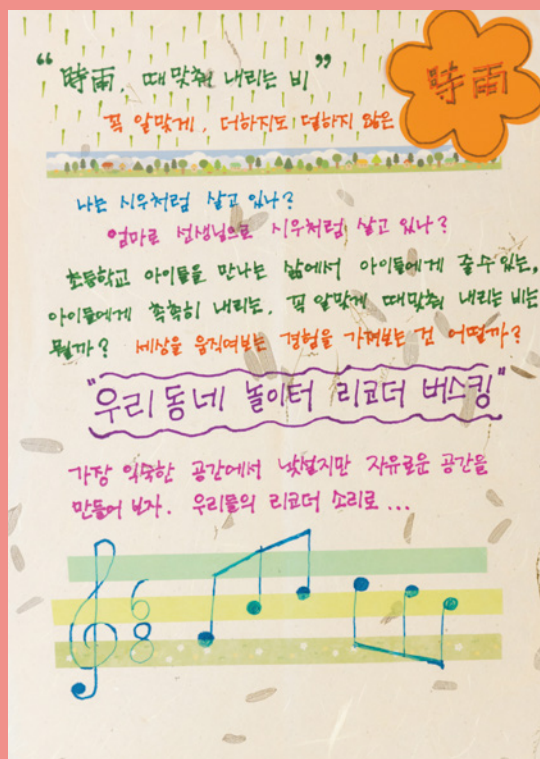 “時雨, 때맞춰 내리는 비”
時雨
꼭 알맞게, 더하지도 덜하지 않은
나는 시우처럼 살고 있나?
엄마로 선생님으로 시우처럼 살고 있나?
초등학교 아이들을 만나는 삶에서 아이들에게 줄 수 있는,
아이들에게 촉촉히 내리는, 꼭 알맞게 때맞춰 내리는 비는
뭘까? 세상을 움직여보는 경험을 가져보는 건 어떨까?
"우리동네 놀이터 리코더 버스킹"
가장 익숙한 공간에서 낯설지만 자유로운 공간을
만들어 보자. 우리들의 리코더 소리로...
6
8